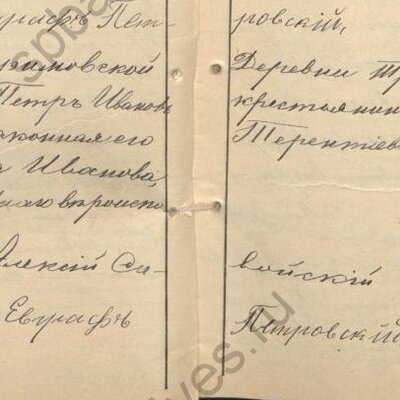 графъ Пет-
риновской
Петръ Ивановъ
законная его
а Иванова,
Алексій Си-
Евграфъ
ровскій,
Деревни
крестьянин
Терентіев
войскій
Петровскій